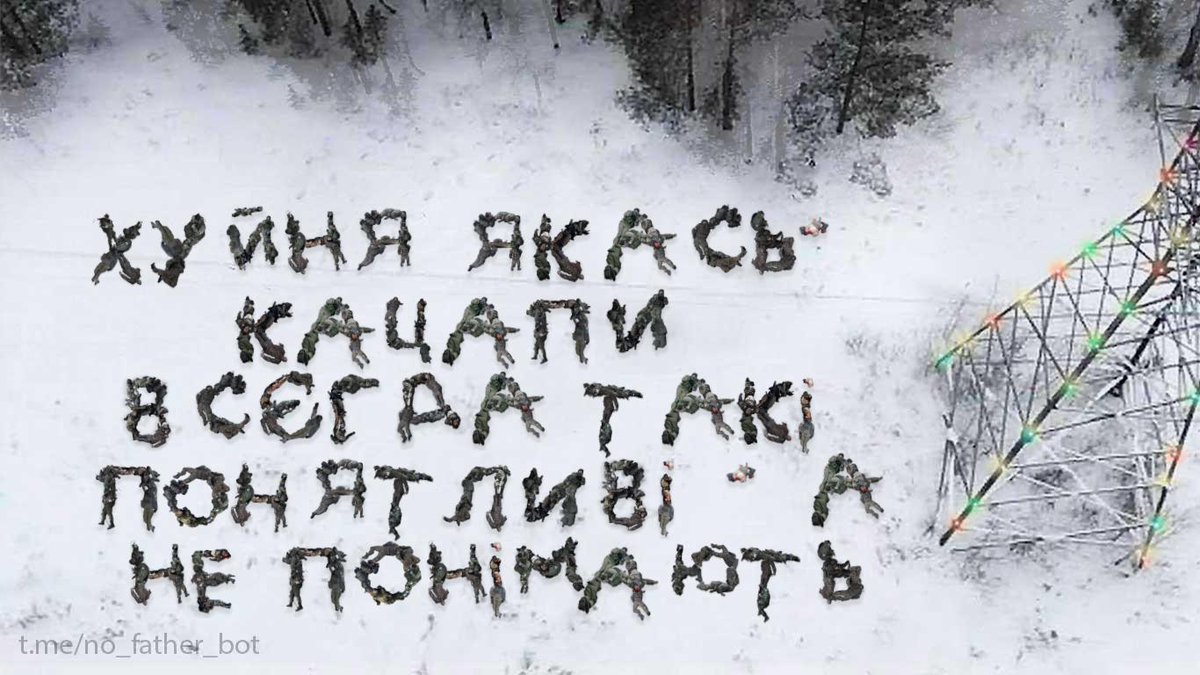 ХУЙНЯ ЯКАСЬ
КАЦАПИ
ВСЄГДА ТАКІ
ПОНЯТЛИВІ А
НЕ ПОНІМАЮТЬ
t.me/no_father_bot